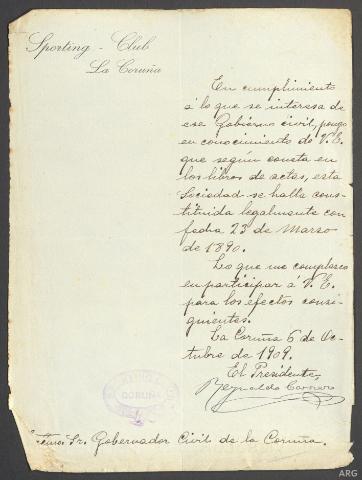 Sporting - Club
La Coruña
En cumplimiento
á lo que se interesa de
ese Gobierno civil, pongo
en conocimiento de V. E.
que según consta en
los libros de actas, esta
Sociedad se halla cons-
tituida legalmente con
fecha 23 de Marzo
de 1890.
Lo que me complazco
en participar á V. E.
para los efectos consi-
guientes.
La Coruña 6 de Oc-
tubre de 1909.
El Presidente,
Reynaldo
CORUÑA
Excmo. Sr. Gobernador Civil de la Coruña.
ARG